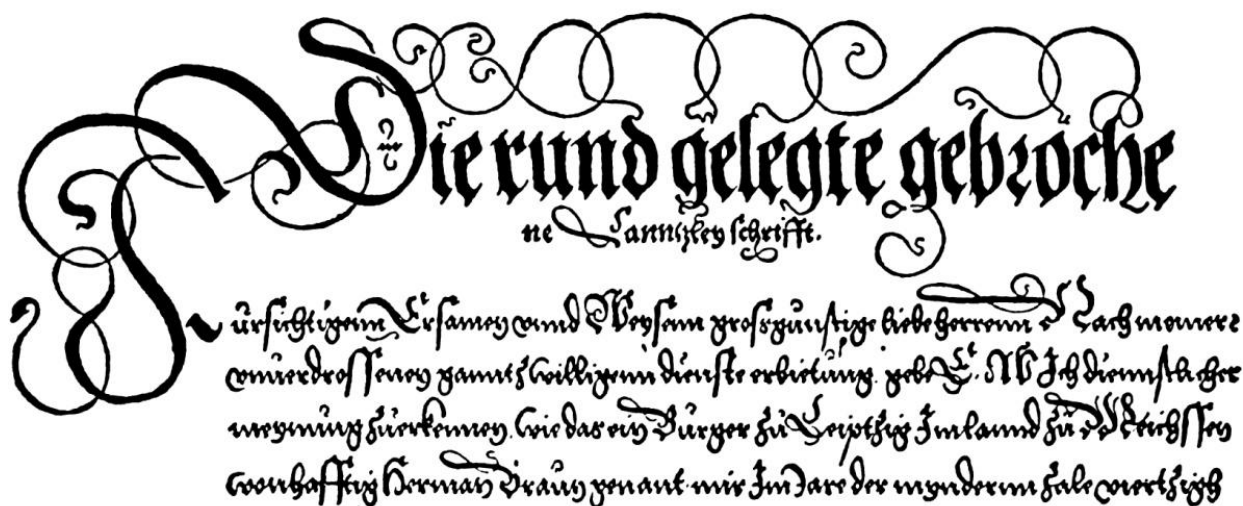 Die rund gelegte gebroche
ne Canntzley schrifft.
Fürsichtigenn Ersamen vnnd Weysenn grosgunstige liebe herrenn Nach meiner
vnuerdrossenen ganntz willigenn dienste erbietung. gebe E. W Ich diennstlicher
meynung zuerkennen. wie das ein Burger zu Leiptzig Im lannd zu Meichssen
wonhafftig Herman Braun genant. mir Im Jare der myndernn zale viertzigh